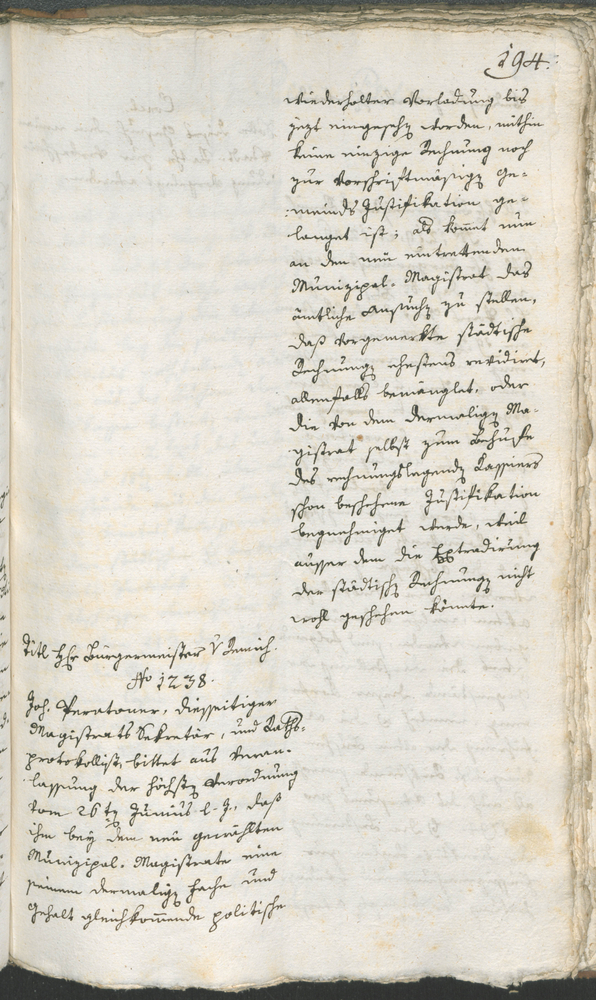 194.
wiederholter Vorladung bis
jezt eingeschz worden, mithin
keine einzige Rechnung noch
zur vorschriftmäsigz Ge-
meinds Justifikation ge-
langet ist; als kommt nun
an den neu eintrettenden
Munizipal-Magistrat das
ämtliche Ansuchz zu stellen,
daß vorgemerkte städtische
Rechnungz ehestens revidiert,
allenfalls bemänglet, oder
die von dem dermaligz Ma-
gistrat selbst zum Behufe
des rechnungslegendz Kassiers
schon beschehene Justifikation
begnehmiget werde, weil
ausser dem die Extradirung
der städtischz Rechnungz nicht
wohl geschehen könnte.
Titl Hr Bürgermeister v
No 1238.
Joh. Peratoner, diesseitiger
Magistrats Sekretär, und Raths-
protokollist bittet aus Veran-
lassung der höchstz Verordnung
vom 26tz Junius l. J., daß
ihm bey dem neu gewählten
Munizipal-Magistrate eine
seinem dermaligz Fache und
Gehalt gleichkommende politische